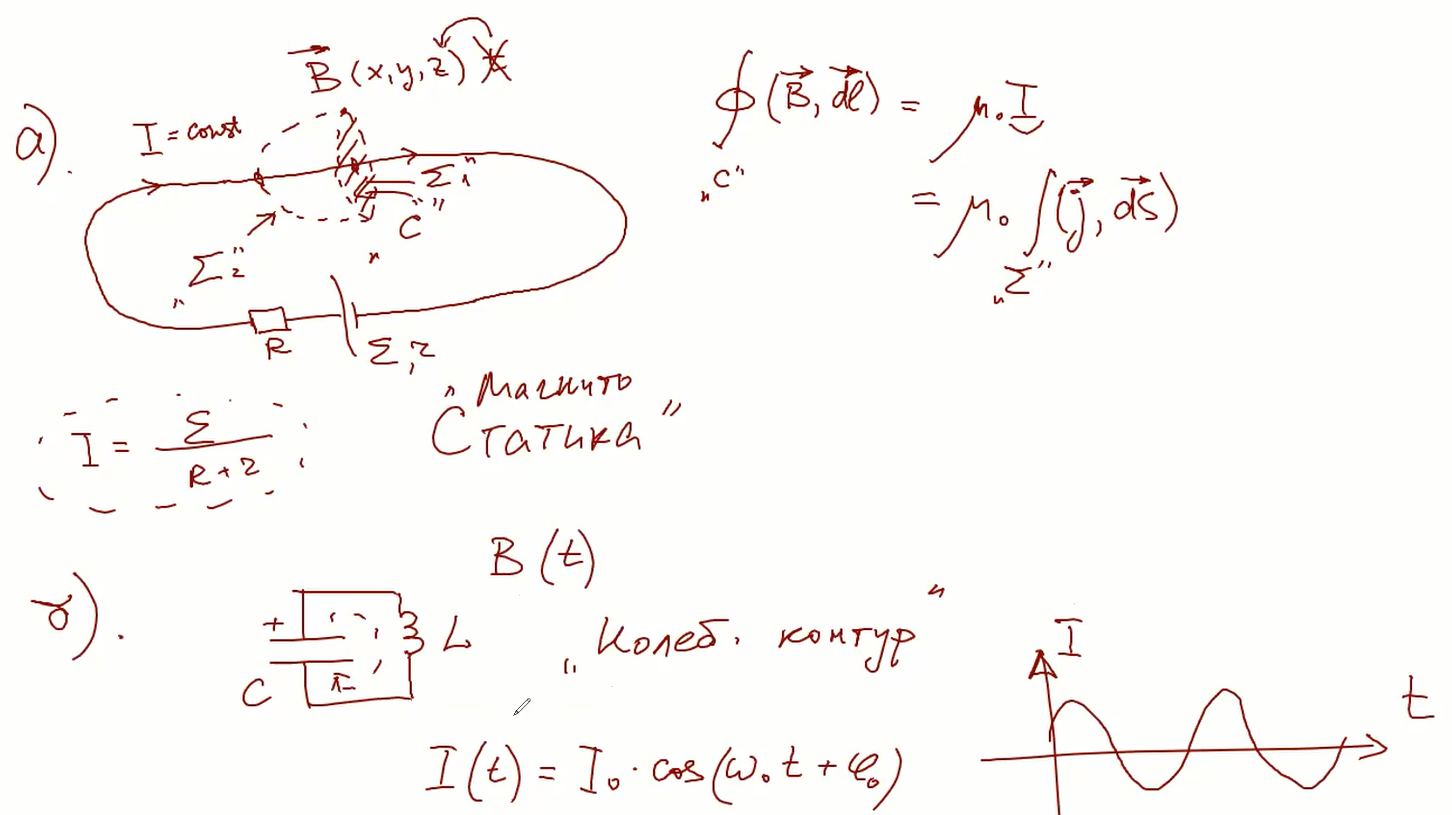 а).
B⃗ (x, y, z)
I = const
„Σ₁"
„C"
„Σ₂"
R
Ɛ, r
∮ (B⃗, dl⃗) = μ₀ I
„C"
= μ₀ ∫ (j⃗, dS⃗)
„Σ"
I = Ɛ / (R + r)
„Магнито
Статика"
B (t)
б).
+
C
L
I
„Колеб. контур"
I
t
I(t) = I₀ · cos(ω₀ t + φ₀)